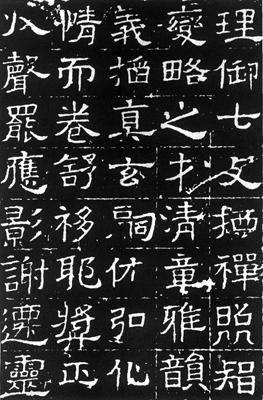 理御七支栖禪照智
變略之才清童雅韻
義栖真玄嗣弘化
情而卷舒移耶獎正
八聲罷應影謝遷靈